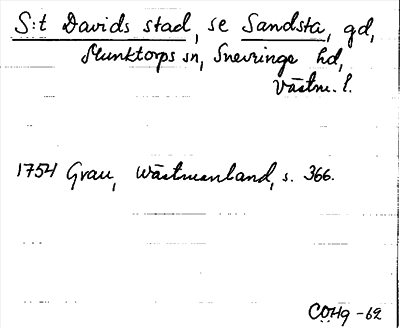 S:t Davids stad, se Sandsta, gd,
Munktorps sn, Snevringe hd,
Västm. l.
1754 Grau, Wästmanland, s. 366.
COHg -62